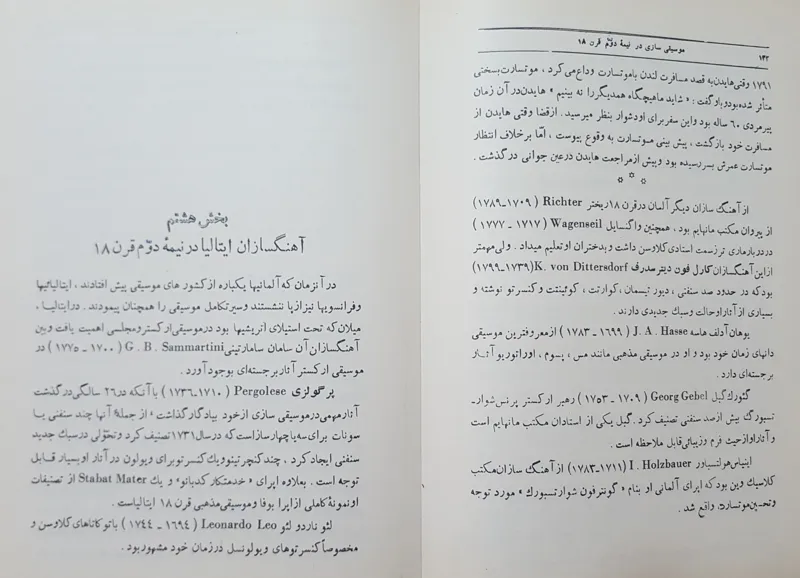 موسیقی سازی در نیمهٔ دوّم قرن ۱۸
۱۴۲
۱۷۹۱ وقتی هایدن به قصد مسافرت لندن با موتسارت وداع می کرد ، موتسارت بسختی
متأثر شده بود و باو گفت : « شاید ما هیچگاه همدیگر را نه بینیم » هایدن در آن زمان
پیرمردی ۶۰ ساله بود و این سفر برای او دشوار بنظر میرسید . از قضا وقتی هایدن از
مسافرت خود بازگشت ، پیش بینی موتسارت به وقوع پیوست ، امّا بر خلاف انتظار
موتسارت عمرش بسر رسیده بود و پیش از مراجعت هایدن در عین جوانی در گذشت .
* * *
از آهنگ سازان دیگر آلمان در قرن ۱۸ ریختر Richter ( ۱۷۰۹ـ۱۷۸۹)
از پیروان مکتب مانهایم بود ، همچنین واگنسایل Wagenseil ( ۱۷۱۷ ـ ۱۷۷۷ )
در دربار ماری ترز سمت استادی کلاوسن داشت و بدختران او تعلیم میداد . ولی مهمتر
از این آهنگسازان کارل فون دیترسدرف K. von Dittersdorf (۱۷۳۹ـ۱۷۹۹)
بود که در حدود صد سنفنی ، دیور تیسمان ، کوارتت ، کوئینتت و کنسرتو نوشته و
بسیاری از آثار او حالت و سبك جدیدی دارند .
یوهان آدلف هاسه J. A. Hasse ( ۱۶۹۹ ـ ۱۷۸۳ ) از معروفترین موسیقی
دانهای زمان خود بود و او در موسیقی مذهبی مانند مس ، پسوم ، اوراتوریو آثار
برجسته ای دارد .
گئورك گبل Georg Gebel ( ۱۷۰۹ ـ ۱۷۵۳ ) رهبر ارکستر پرنس شوار-
تسبورگ بیش از صد سنفنی تصنیف کرد . گبل یکی از استادان مکتب مانهایم است
و آثار او از حیث فرم و زیبائی قابل ملاحظه است .
اینیاس هولتسباور I . Holzbauer (۱۷۱۱ـ۱۷۸۳) از آهنگ سازان مکتب
کلاسیك وین بود که اپرای آلمانی او بنام « گونترفون شوارتسبورك » مورد توجه
و تحسین موتسارت واقع شد .
بخش هشتم
آهنگسازان ایتالیا در نیمهٔ دوّم قرن ۱۸
در آنزمان که آلمانیها یکباره از کشور های موسیقی پیش افتادند ، ایتالیائیها
و فرانسویها نیز از پا ننشستند و سیر تکامل موسیقی را همچنان پیمودند . در ایتالیا ،
میلان که تحت استیلای اتریشیها بود در موسیقی ارکستر و مجلسی اهمیت یافت و بین
آهنگسازان آن سامان سامارتینی G . B . Sammartini ( ۱۷۰۰ ـ ۱۷۷۵ ) در
موسیقی ارکستر آثار برجسته ای بوجود آورد .
پرگولزی Pergolese ( ۱۷۱۰ـ۱۷۳۶ ) با آنکه در ۲۶ سالگی درگذشت
آثار مهمی در موسیقی سازی از خود بیادگار گذاشت ؛ از جملهٔ آنها چند سنفنی یا
سونات برای سه یا چهار ساز است که در سال ۱۷۳۱ تصنیف کرد و تحوّلی در سبك جدید
سنفنی ایجاد کرد ، چند کنچرتینو و یك کنسرتو برای ویولون در آثار او بسیار قابل
توجه است . بعلاوه اپرای « خدمتکار کدبانو » و یك Stabat Mater از تصنیفات
او نمونهٔ کاملی از اپرا بوفا و موسیقی مذهبی قرن ۱۸ ایتالیاست .
لئو ناردو لئو Leonardo Leo ( ۱۶۹۴ ـ ۱۷۴۴ ) با توکاتاهای کلاوسن و
مخصوصاً کنسرتوهای ویولونسل در زمان خود مشهور بود .